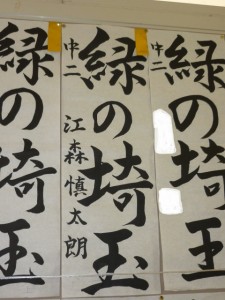 緑の埼玉
中二
緑の埼玉
中二 江森慎太朗
緑の埼玉